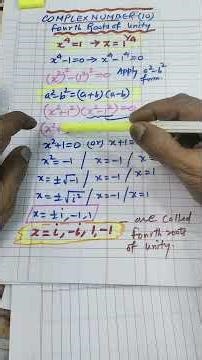 COMPLEX NUMBER (10)
Fourth Roots of Unity
x⁴=1 → x=1^(1/4)
x⁴-1=0 → x⁴-1⁴=0
(x²)²-(1²)²=0 Apply a²-b² form.
a²-b²=(a+b)(a-b)
(x²+1²)(x²-1²)=0
(x²+
x²+1=0 (or) x+1=
x²=-1 / x=-1 /
x=±√-1 / x=-1 / x=1
x=±√i² / x=-1 / x=1
x=±i,-1,1
x=i,-i,1,-1
are called
fourth roots
of unity.